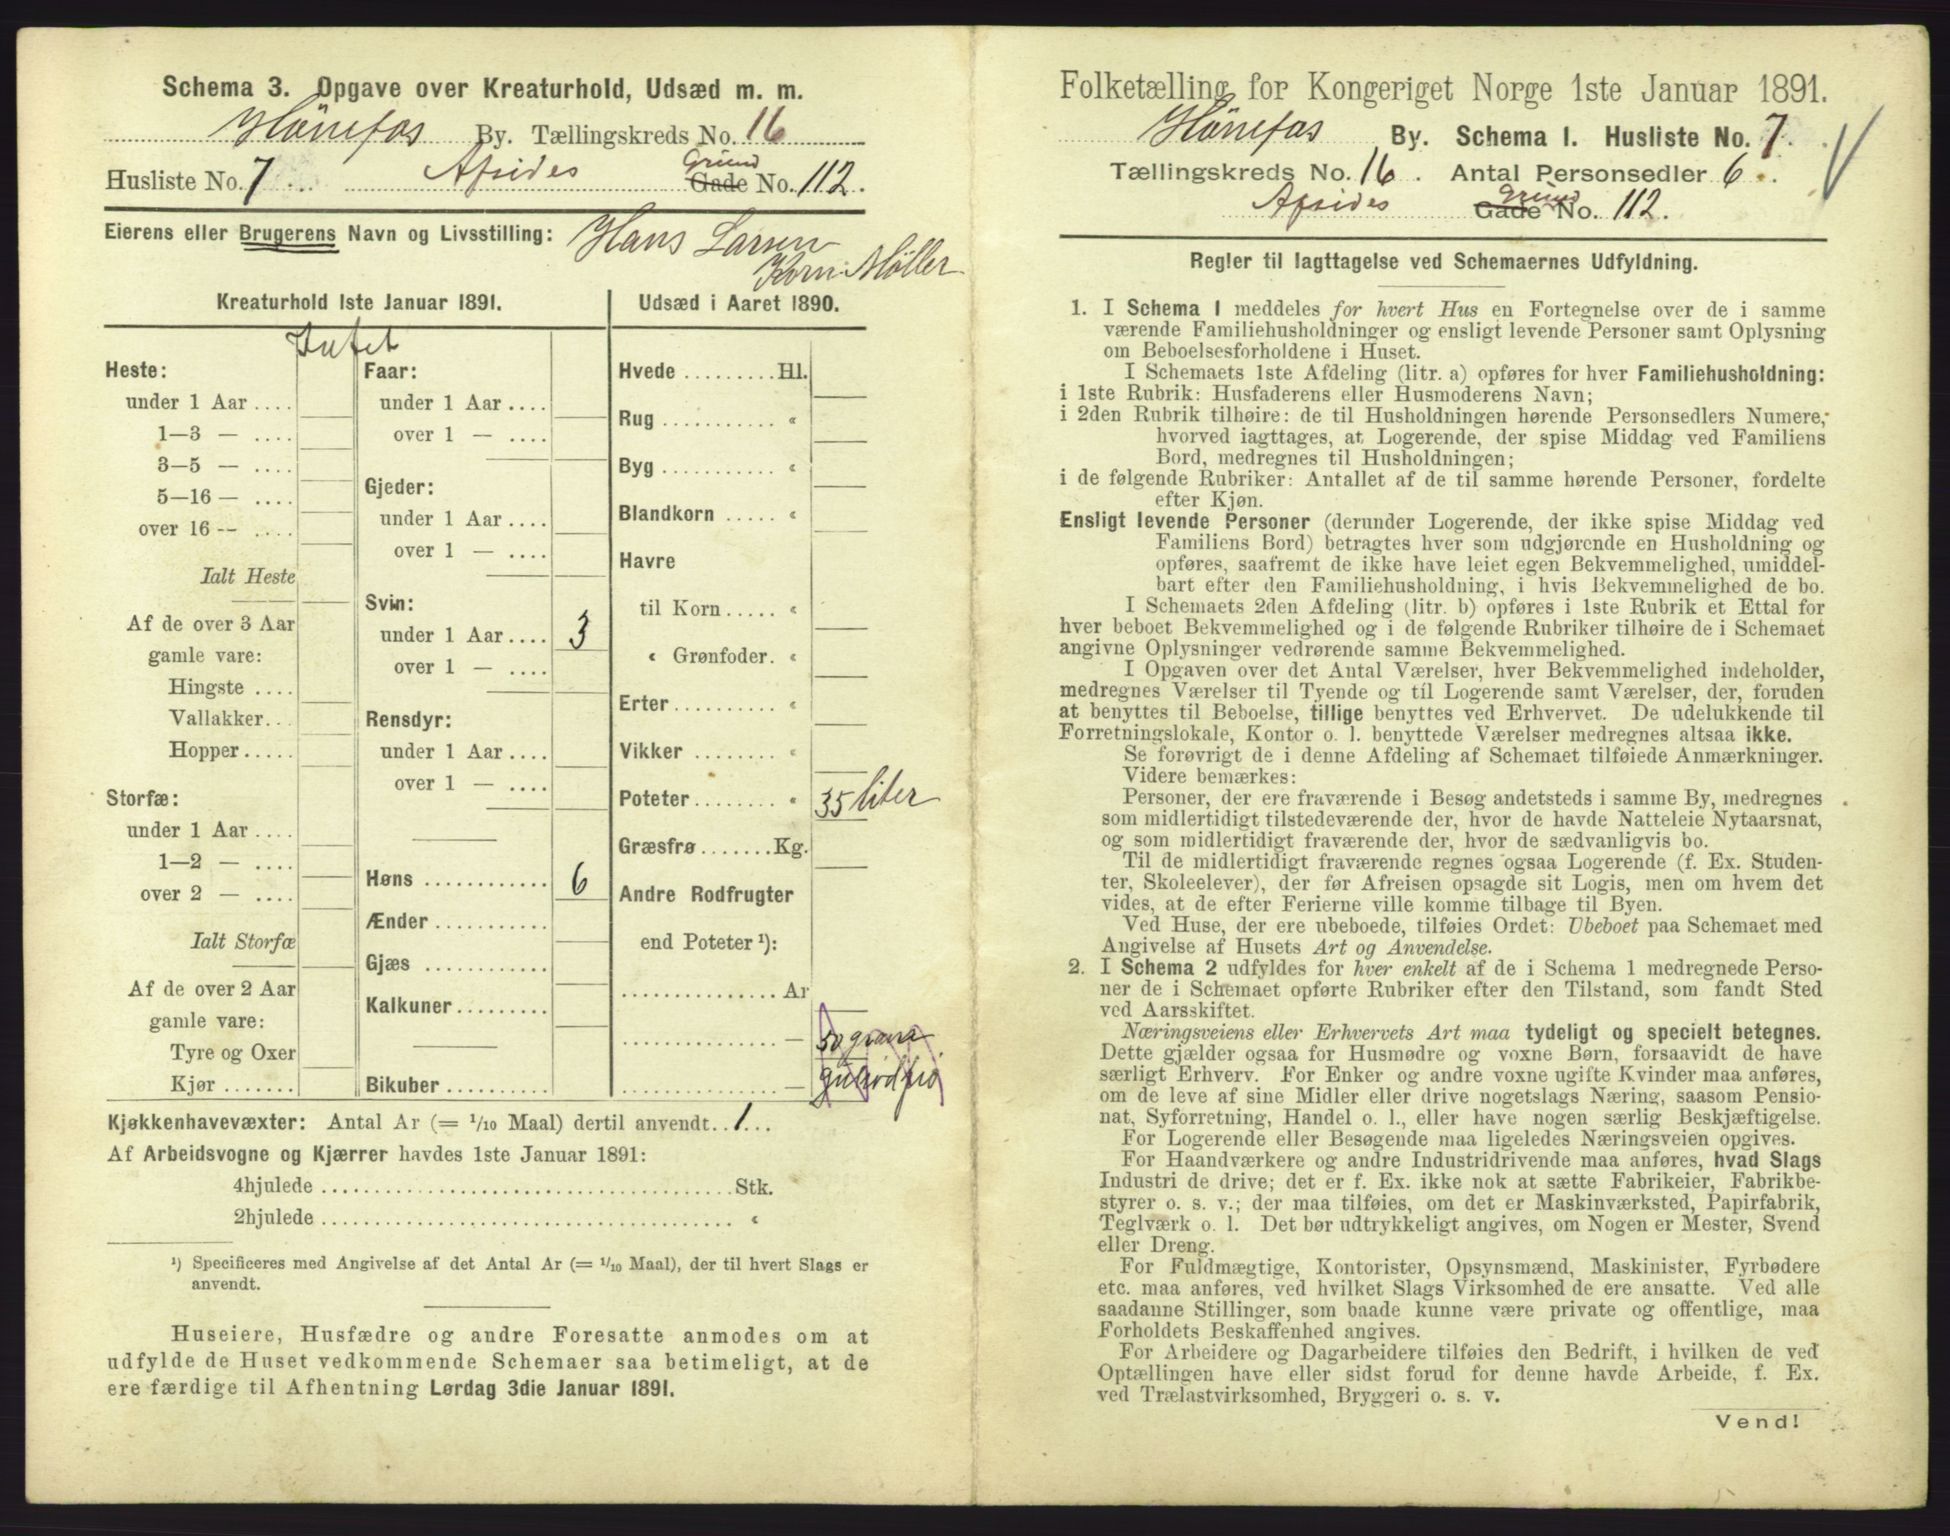 Schema 3. Opgave over Kreaturhold, Udsæd m. m.
Hönefos By. Tællingskreds No. 16
Husliste No. 7 Afsides Grund Gade No. 112.
Eierens eller Brugerens Navn og Livsstilling: Hans Larsen
Korn Möller
Kreaturhold 1ste Januar 1891.
Intet
Heste:
under 1 Aar ....
1—3 — ....
3—5 — ....
5—16 — ....
over 16 -- ....
Ialt Heste
Af de over 3 Aar
gamle vare:
Hingste ....
Vallakker...
Hopper.....
Storfæ:
under 1 Aar ....
1—2 — ....
over 2 — ....
Ialt Storfæ
Af de over 2 Aar
gamle vare:
Tyre og Oxer
Kjør ......
Faar:
under 1 Aar ....
over 1 — ....
Gjeder:
under 1 Aar ....
over 1 — ....
Svin:
under 1 Aar .... 3
over 1 — ....
Rensdyr:
under 1 Aar ....
over 1 — ....
Høns ............ 6
Ænder ...........
Gjæs ............
Kalkuner .........
Bikuber ..........
Udsæd i Aaret 1890.
Hvede .........Hl.
Rug ............ «
Byg ............ «
Blandkorn ..... «
Havre
til Korn ..... «
« Grønfoder. «
Erter.......... «
Vikker ........ «
Poteter........ « 35 liter
Græsfrø.......Kg.
Andre Rodfrugter
end Poteter ¹):
............... Ar
............... — 50 gram
............... — gulrodfrö
Kjøkkenhavevæxter: Antal Ar (= 1/10 Maal) dertil anvendt.. 1...
Af Arbeidsvogne og Kjærrer havdes 1ste Januar 1891:
4hjulede ........................................Stk.
2hjulede ........................................ «
¹) Specificeres med Angivelse af det Antal Ar (= 1/10 Maal), der til hvert Slags er
anvendt.
Huseiere, Husfædre og andre Foresatte anmodes om at
udfylde de Huset vedkommende Schemaer saa betimeligt, at de
ere færdige til Afhentning Lørdag 3die Januar 1891.
Folketælling for Kongeriget Norge 1ste Januar 1891.
Hönefos By. Schema I. Husliste No. 7.
Tællingskreds No. 16. Antal Personsedler 6.
Afsides Grund Gade No. 112.
Regler til Iagttagelse ved Schemaernes Udfyldning.
1. I Schema I meddeles for hvert Hus en Fortegnelse over de i samme
værende Familiehusholdninger og ensligt levende Personer samt Oplysning
om Beboelsesforholdene i Huset.
I Schemaets 1ste Afdeling (litr. a) opføres for hver Familiehusholdning:
i 1ste Rubrik: Husfaderens eller Husmoderens Navn;
i 2den Rubrik tilhøire: de til Husholdningen hørende Personsedlers Numere,
hvorved iagttages, at Logerende, der spise Middag ved Familiens
Bord, medregnes til Husholdningen;
i de følgende Rubriker: Antallet af de til samme hørende Personer, fordelte
efter Kjøn.
Ensligt levende Personer (derunder Logerende, der ikke spise Middag ved
Familiens Bord) betragtes hver som udgjørende en Husholdning og
opføres, saafremt de ikke have leiet egen Bekvemmelighed, umiddel-
bart efter den Familiehusholdning, i hvis Bekvemmelighed de bo.
I Schemaets 2den Afdeling (litr. b) opføres i 1ste Rubrik et Ettal for
hver beboet Bekvemmelighed og i de følgende Rubriker tilhøire de i Schemaet
angivne Oplysninger vedrørende samme Bekvemmelighed.
I Opgaven over det Antal Værelser, hver Bekvemmelighed indeholder,
medregnes Værelser til Tyende og til Logerende samt Værelser, der, foruden
at benyttes til Beboelse, tillige benyttes ved Erhvervet. De udelukkende til
Forretningslokale, Kontor o. l. benyttede Værelser medregnes altsaa ikke.
Se forøvrigt de i denne Afdeling af Schemaet tilføiede Anmærkninger.
Videre bemærkes:
Personer, der ere fraværende i Besøg andetsteds i samme By, medregnes
som midlertidigt tilstedeværende der, hvor de havde Natteleie Nytaarsnat,
og som midlertidigt fraværende der, hvor de sædvanligvis bo.
Til de midlertidigt fraværende regnes ogsaa Logerende (f. Ex. Studen-
ter, Skoleelever), der før Afreisen opsagde sit Logis, men om hvem det
vides, at de efter Ferierne ville komme tilbage til Byen.
Ved Huse, der ere ubeboede, tilføies Ordet: Ubeboet paa Schemaet med
Angivelse af Husets Art og Anvendelse.
2. I Schema 2 udfyldes for hver enkelt af de i Schema 1 medregnede Perso-
ner de i Schemaet opførte Rubriker efter den Tilstand, som fandt Sted
ved Aarsskiftet.
Næringsveiens eller Erhvervets Art maa tydeligt og specielt betegnes.
Dette gjælder ogsaa for Husmødre og voxne Børn, forsaavidt de have
særligt Erhverv. For Enker og andre voxne ugifte Kvinder maa anføres,
om de leve af sine Midler eller drive nogetslags Næring, saasom Pensio-
nat, Syforretning, Handel o. l., eller have nogen særlig Beskjæftigelse.
For Logerende eller Besøgende maa ligeledes Næringsveien opgives.
For Haandværkere og andre Industridrivende maa anføres, hvad Slags
Industri de drive; det er f. Ex. ikke nok at sætte Fabrikeier, Fabrikbe-
styrer o. s. v.; der maa tilføies, om det er Maskinværksted, Papirfabrik,
Teglværk o. l. Det bør udtrykkeligt angives, om Nogen er Mester, Svend
eller Dreng.
For Fuldmægtige, Kontorister, Opsynsmænd, Maskinister, Fyrbødere
etc. maa anføres, ved hvilket Slags Virksomhed de ere ansatte. Ved alle
saadanne Stillinger, som baade kunne være private og offentlige, maa
Forholdets Beskaffenhed angives.
For Arbeidere og Dagarbeidere tilføies den Bedrift, i hvilken de ved
Optællingen have eller sidst forud for denne havde Arbeide, f. Ex.
ved Trælastvirksomhed, Bryggeri o. s. v.
Vend!